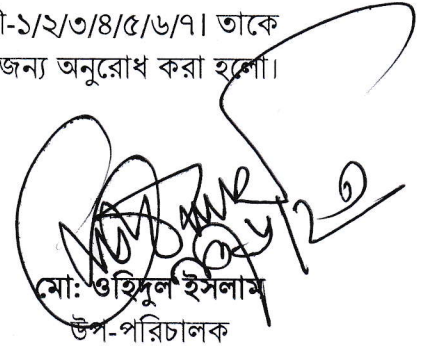 ী-১/২/৩/৪/৫/৬/৭। তাকে
জন্য অনুরোধ করা হলো।
মো: ওহিদুল ইসলাম
উপ-পরিচালক